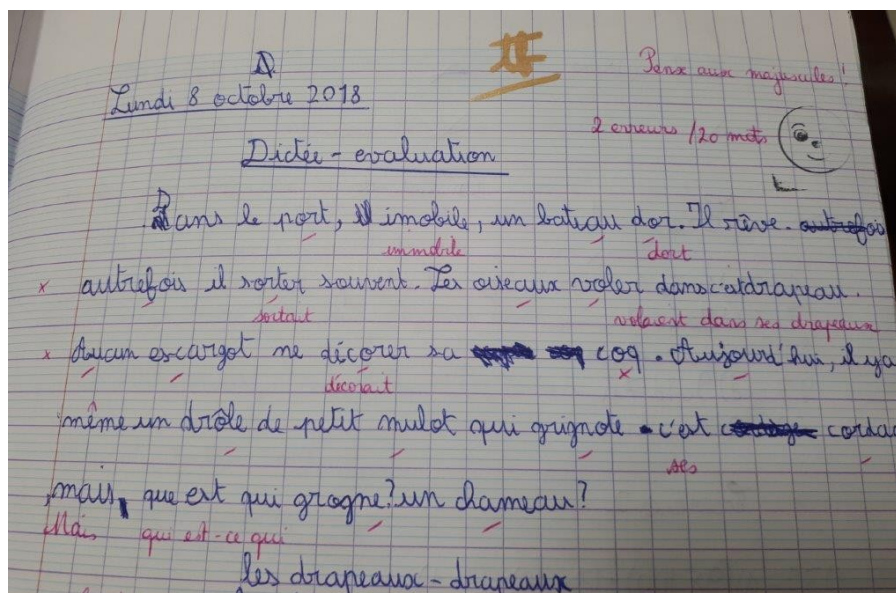 Pense aux majuscules !
Lundi 8 octobre 2018
2 erreurs /20 mots
Dictée - evaluation
Dans le port, imobile, un bateau dor. Il rêve. autrefois
immobile dort
x autrefois il sorter souvent. Les oiseaux voler dans c'estdrapeau.
sortait volaient dans ses drapeaux
x Aucun escargot ne décorer sa coq. Aujourd'hui, il y a
décorait x
même un drôle de petit mulot qui grignote c'est cordag
ses
, mais, que est qui grogne? un chameau?
Mais qui est-ce qui
les drapeaux - drapeaux